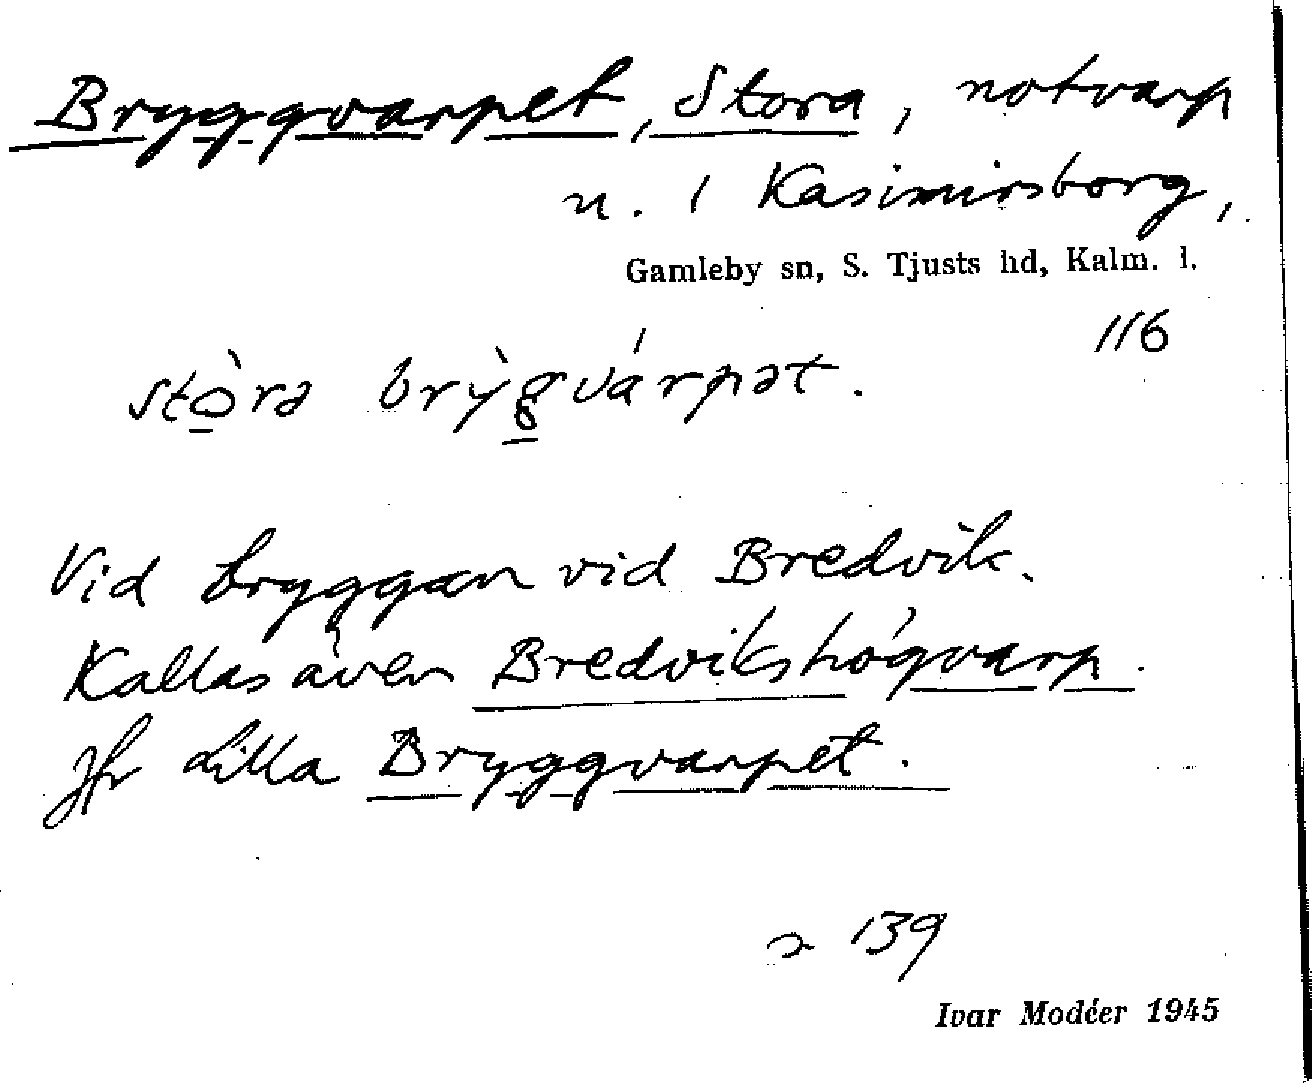 Bryggvarpet, Stora, notvarp
u. 1 Kasimirsborg,
Gamleby sn, S. Tjusts hd, Kalm. l.
116
stò̱rə brỳg̱várpət.
Vid bryggan vid Bredvik.
Kallas även Bredvikshögvarp.
Jfr Lilla Bryggvarpet.
139
Ivar Modéer 1945